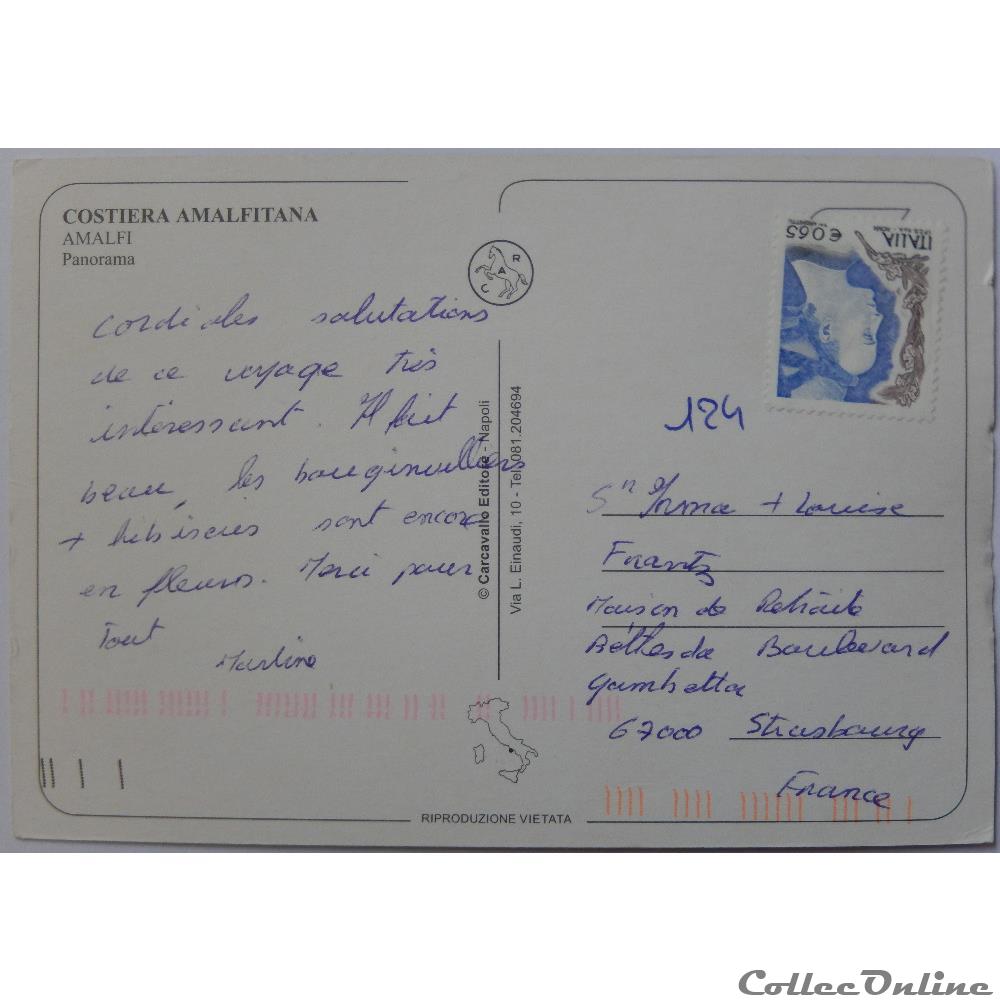 COSTIERA AMALFITANA
AMALFI
Panorama
C A R
Cordiales salutations
de ce voyage très
intéressant. Il fait
beau, les bouginvilliers
+ hibiscus sont encore
en fleurs. Merci pour
Tout
Martine
© Carcavallo Editore - Napoli
Via L. Einaudi, 10 - Tel. 081.204694
ITALIA
€ 0,65
124
Irma + Louise
Frantz
Maison de Retraite
Béthesda Boulevard
Gambetta
67000 Strasbourg
France
RIPRODUZIONE VIETATA
CollecOnline